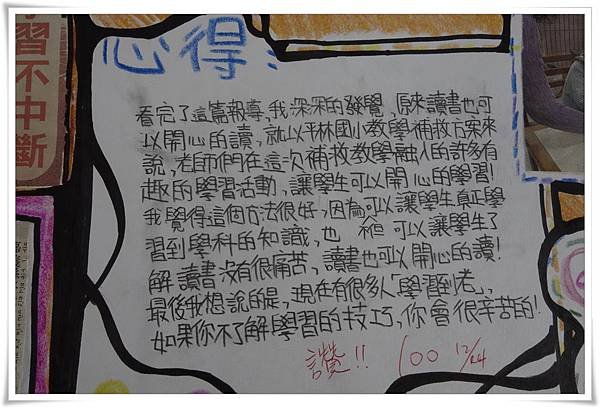 習不中斷
心得:
看完了這篇報導,我深深的發覺,原來讀書也可
以開心的讀,就以平林國小教學補救方案來
說,老師們在這次補救教學融入的許多有
趣的學習活動,讓學生可以開心的學習!
我覺得這個方法很好,因為可以讓學生真正學
習到學科的知識,也 可以讓學生了
解讀書沒有很痛苦,讀書也可以開心的讀!
最後我想說的是,現在有很多人「學習到老」,
如果你不了解學習的技巧,你會很辛苦的!
讚!! 100 12/24